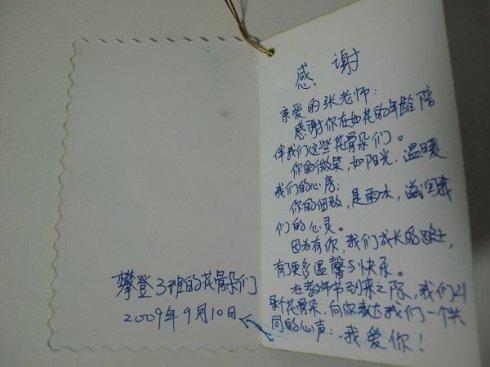 攀登3班的花骨朵们
2009年9月10日
感谢
亲爱的张老师:
感谢你在如花的年龄陪
伴我们这些花骨朵们。
你的微笑,如阳光,温暖
我们的心房;
你的细致,是雨水,滋润我
们的心灵。
因为有你,我们成长的路上,
有更多温馨与快乐。
在教师节到来之际,我们21
朵花骨朵,向你表达我们一个共
同的心声:我爱你!